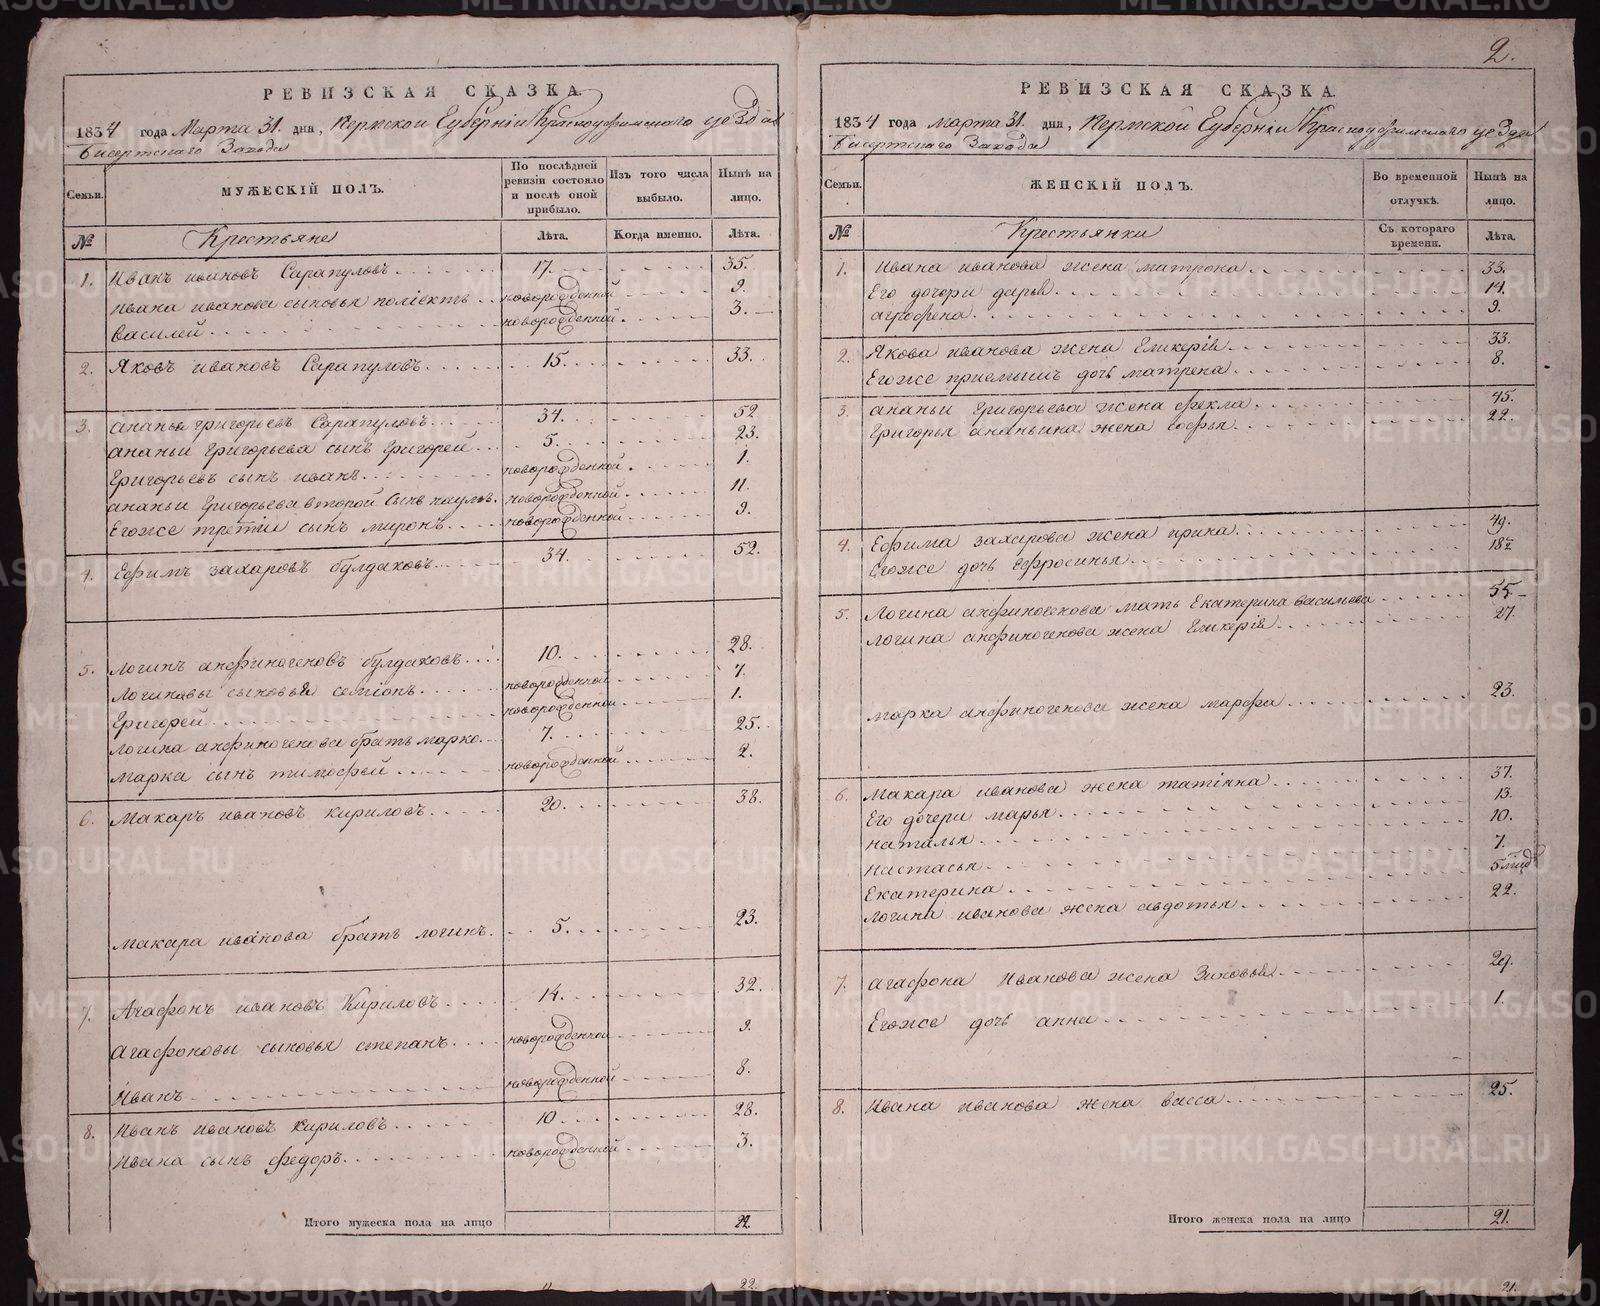 2.
РЕВИЗСКАЯ СКАЗКА.
1834 года Марта 31. дня, Пермской Губерніи Красноуфимскаго уезда
Бисертскаго Завода
Семьи.
МУЖЕСКІЙ ПОЛЪ.
По послѣдней ревизіи состояло и послѣ оной прибыло.
Изъ того числа выбыло.
Нынѣ на лицо.
№ Крестьяне Лѣта. Когда именно. Лѣта.
1. Иванъ ивановъ Сарапуловъ 17. 35.
ивана иванова сыновья поліектъ новорожденной 9.
Василей новорожденной 3.
2. Яковъ ивановъ Сарапуловъ 15. 33.
3. Ананьй григорьевъ Сарапуловъ 34. 52
ананьи Григорьева сынъ Григорей 5. 23.
Григорьевъ сынъ иванъ новорожденной 1.
ананьи Григорьева второй сынъ наумъ новорожденной 11.
Егоже третіи сынъ миронъ новорожденной 9.
4. Ефимъ захаровъ булдаковъ 34. 52.
5. Логинъ анфиногеновъ булдаковъ 10. 28.
Логиновы сыновья семіонъ новорожденной 7.
Григорей новорожденной 1.
Логина анфиногенова братъ марко 7. 25.
Марка сынъ тимофей новорожденной 2.
6. Макаръ ивановъ кириловъ 20. 38.
Макара иванова братъ логинъ 5. 23.
7. Агафонъ ивановъ Кириловъ 14. 32.
Агафоновы сыновья степанъ новорожденной 9.
Иванъ новорожденной 8.
8. Иванъ ивановъ кириловъ 10. 28.
Ивана сынъ федоръ новорожденной 3.
Итого мужеска пола на лицо 22.
22.
РЕВИЗСКАЯ СКАЗКА.
1834 года марта 31. дня, Пермской Губерніи Красноуфимскаго уезда
Бисертскаго Завода
Семьи.
ЖЕНСКІЙ ПОЛЪ.
Во временной отлучкѣ.
Нынѣ на лицо.
№ Крестьянки Съ котораго времени. Лѣта.
1. Ивана иванова жена матрона 33.
Его дочери дарья 14.
агрофена 9.
2. Якова иванова жена Гликерій 33.
Егоже приемышъ дочь матрена 8.
3. ананьи Григорьева жена фекла 45.
Григорья ананьина жена софья 22.
4. Ефима захарова жена ирина 49.
Егоже дочь Ефросинья 18½
5. Логина анфиногенова мать Екатерина васильева 55
Логина анфиногенова жена Гликерій 27.
марка анфиногенова жена марфа 23.
6. Макара иванова жена татіяна 37.
Его дочери марья 13.
наталья 10.
настасья 7.
Екатерина 5 мѣс
Логина иванова жена авдотья 22.
7. Агафона Иванова жена Зиновья 29.
Егоже дочь анна 1.
8. Ивана иванова жена васса 25.
Итого женска пола на лицо 21.
21.
METRIKI.GASO-URAL.RU